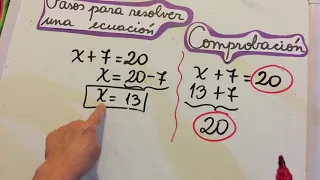 Pasos para resolver
una ecuación
x+7=20
x=20-7
x=13
Comprobación
x+7=20
13+7
20